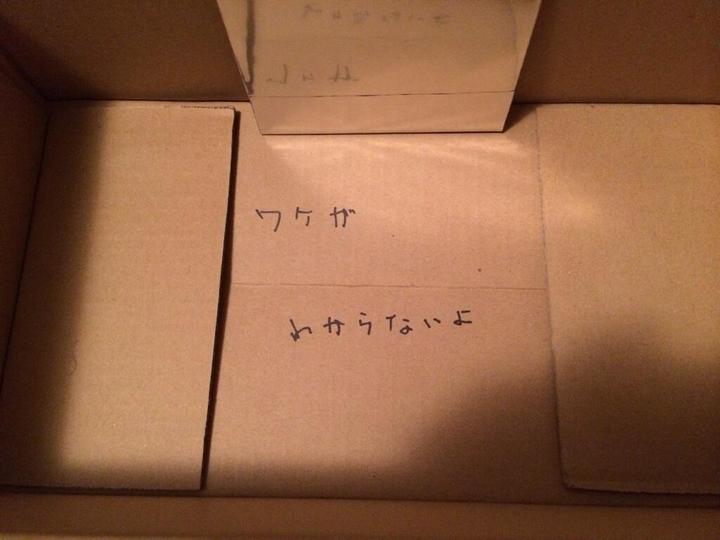 ワケが
わからないよ